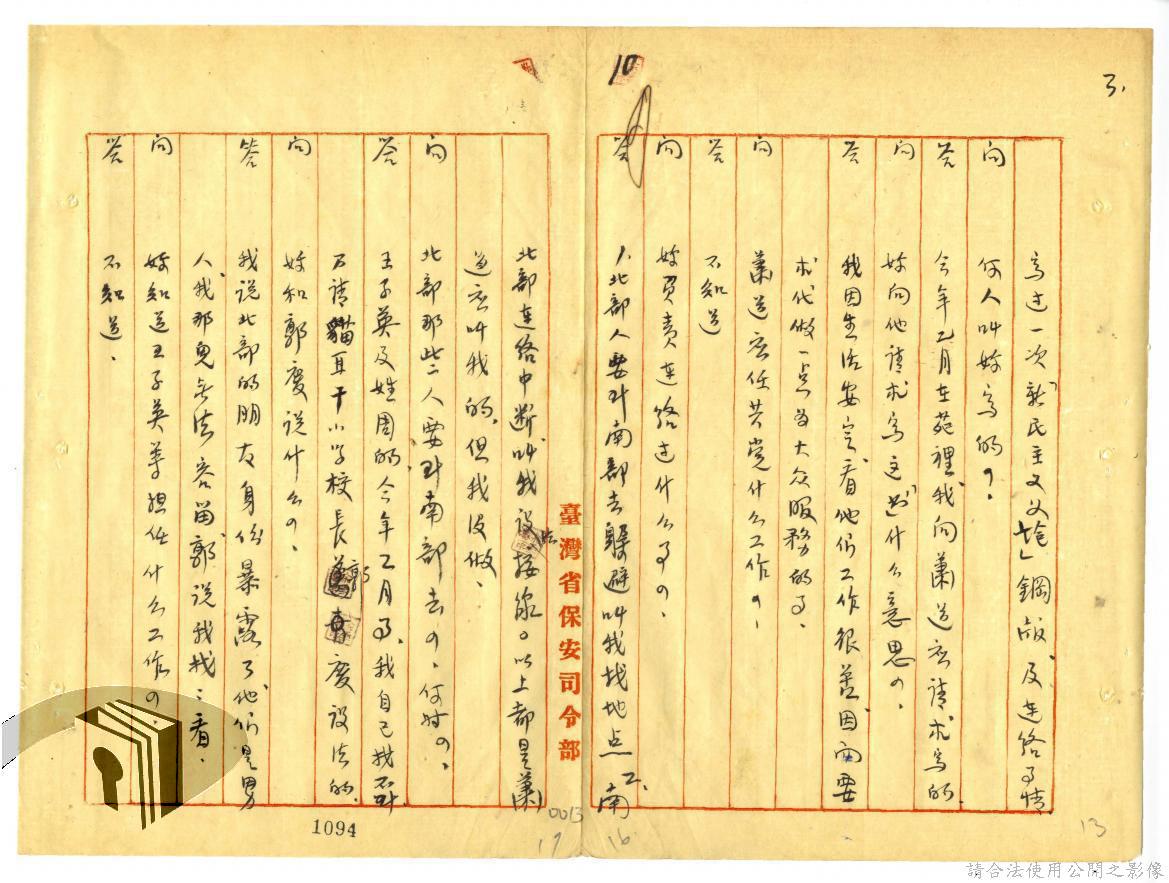 3.
寫过一次新民主主义鋼版,及連絡事情
问 何人叫妳寫的?
答 今年乙月在苑裡,我向蕭道应請求寫的.
问 妳向他請求寫这是什么意思?
答 我因生活安定,看他们工作很苦,因而要
求代做一点為大众服務的事、
问 蕭道应任共党什么工作?
答 不知道
问 妳負責連絡过什么事?
答 1.北部人要到南部去躲避叫我找地点 2.南
10
北部連絡中断,叫我設法接線。以上都是蕭
道应叫我的,但我没做、
问 北部那些人要到南部去?何时?
答 王子英及姓周的,今年乙月事,我自己找不到
乃請貓耳干小学校長郭慶設法的.
问 妳和郭慶说什么?
答 我说北部的朋友身份暴露了,他们是男
人,我那兒無法容留,郭说我找找看、
问 妳知道王子英等担任什么工作?
答 不知道、
臺灣省保安司令部
1094
0013
17
16
13
請合法使用公開之影像